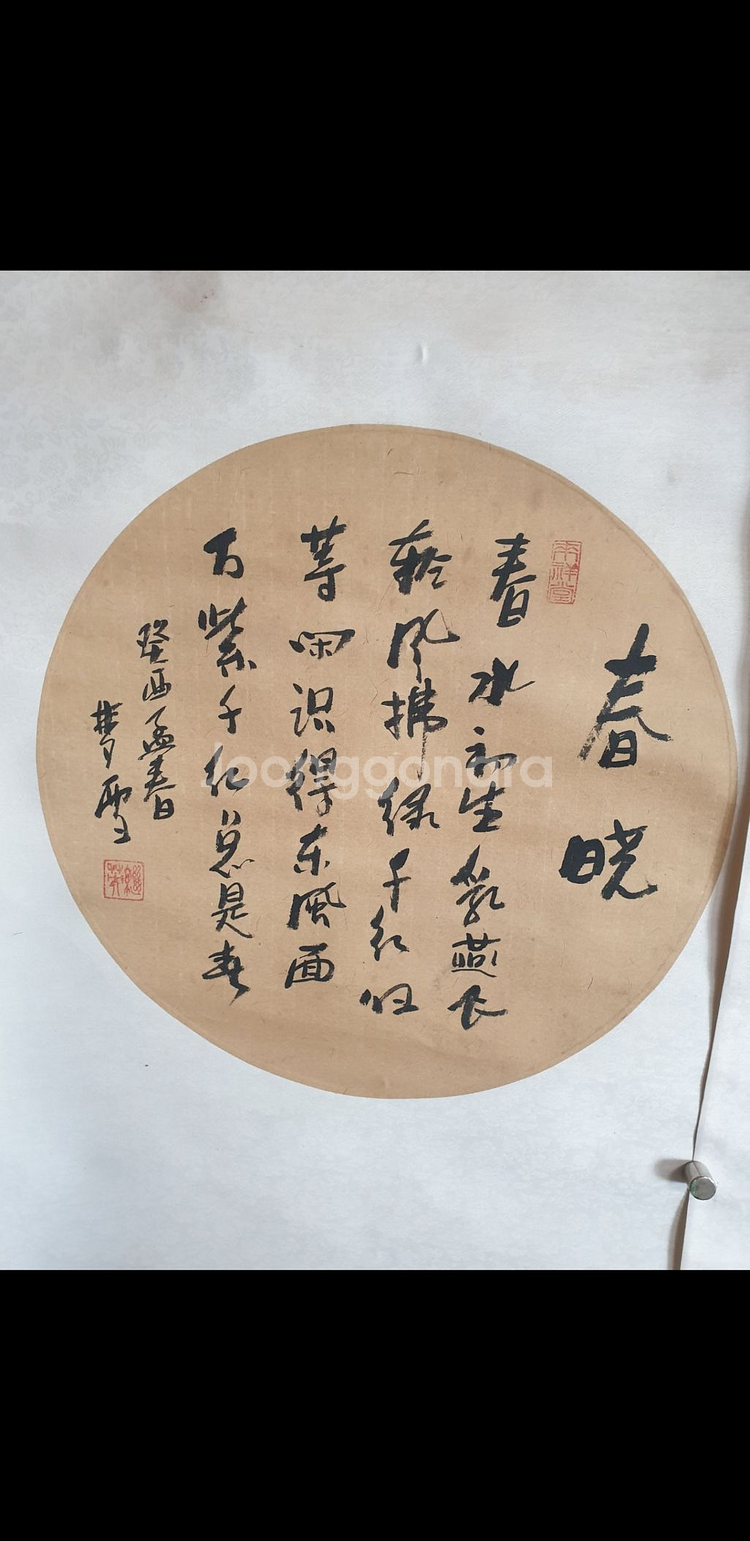 春晓
春水初生乳燕飞
风拂绿千红归
等闲识得东风面
万紫千红总是春
癸酉孟春
梦雪
Joonggonara